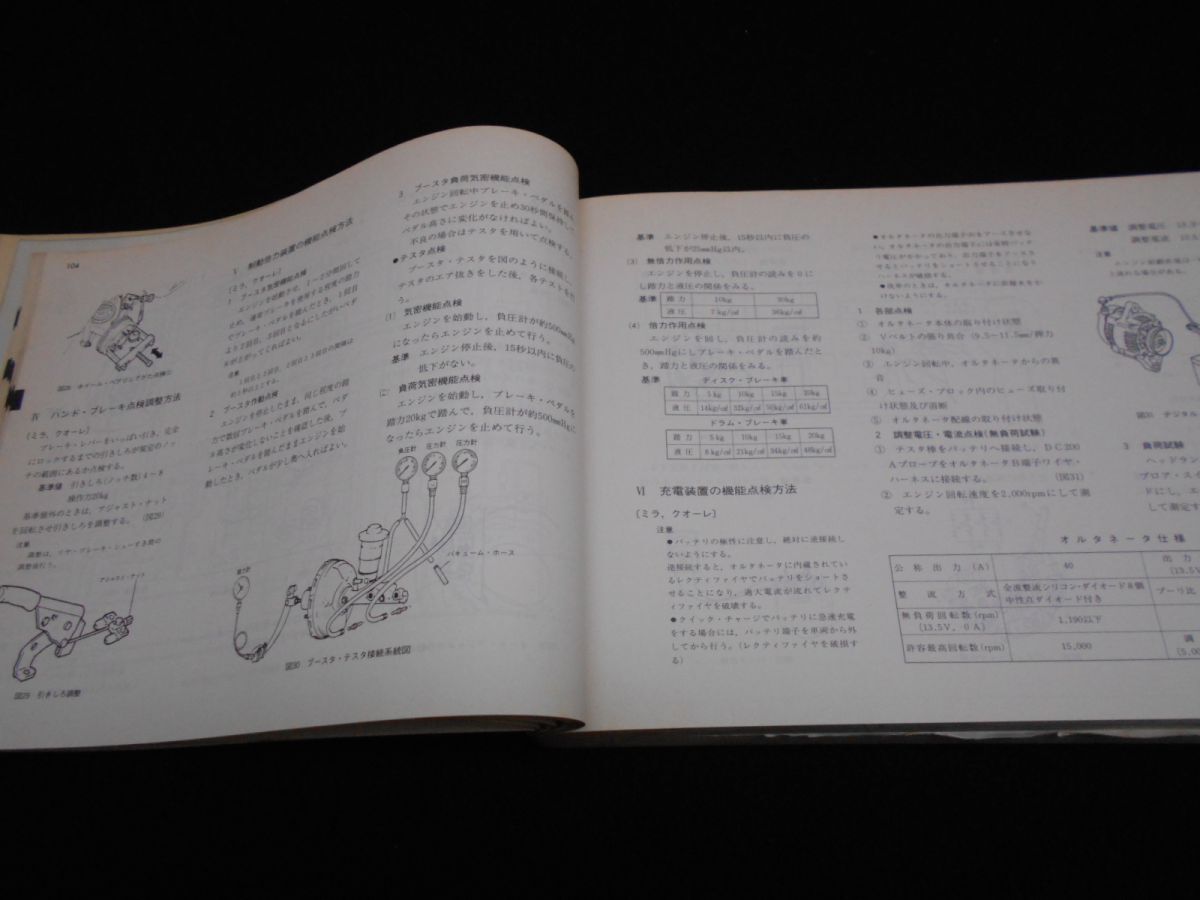 104
図28 ホイール・ベアリングがた点検
Ⅳ ハンド・ブレーキ点検調整方法
[ミラ、クオーレ]
ブレーキ・レバーをいっぱい引き、完全
にロックするまでの引きしろが規定のノッ
チの範囲にあるか点検する。
基準値 引きしろ(ノッチ数) 4~8
操作力20kg
基準値外のときは、アジャスト・ナット
を回転させ引きしろを調整する。 (図29)
注意
調整は、リヤ・ブレーキ・シューすき間の
調整後行う。
アジャスト・ナット
図29 引きしろ調整
Ⅴ 制動倍力装置の機能点検方法
[ミラ、クオーレ]
1 ブースタ気密機能点検
エンジンを始動させ、1~2分間回して
止め、通常ブレーキを使用する程度の踏力
でブレーキ・ペダルを踏んだとき、1回目
より2回目、3回目となるにしたがいペダ
ルが上がってくればよい。
注意
2 ブースタ作動点検
エンジンを停止したまま、同じ程度の踏
力で数回ブレーキ・ペダルを踏んで、ペダ
ル高さが変化しないことを確認した後、ブ
レーキ・ペダルを踏んだままエンジンを始
動したとき、ペダルが少し奥へ入ればよい。
3 ブースタ負荷気密機能点検
エンジン回転中ブレーキ・ペダルを踏み、
その状態でエンジンを止め30秒間保持して
ペダル高さに変化がなければよい。
不良の場合はテスタを用いて点検する。
●テスタ点検
ブースタ・テスタを図のように接続し、
テスタのエア抜きをした後、各テストを行
う。
(1) 気密機能点検
エンジンを始動し、負圧計が約500mmHg
になったらエンジンを止めて行う。
基準 エンジン停止後、15秒以内に負圧の
低下がない。
(2) 負荷気密機能点検
エンジンを始動し、ブレーキ・ペダルを
踏力20kgで踏んで、負圧計が約500mmHgに
なったらエンジンを止めて行う。
負圧計 圧力計 圧力計
踏力計
バキューム・ホース
図30 ブースタ・テスタ接続系統図
基準 エンジン停止後、15秒以内に負圧の
低下が25mmHg以内。
(3) 無倍力作用点検
エンジンを停止し、負圧計の読みを0に
し踏力と液圧の関係をみる。
基準 踏力 10kg 30kg
液圧 7kg/cm² 36kg/cm²
(4) 倍力作用点検
エンジンを回し、負圧計の読みを約
500mmHgにしブレーキ・ペダルを踏んだと
き、踏力と液圧の関係をみる。
基準 ディスク・ブレーキ車
踏力 5kg 10kg 15kg 20kg
液圧 14kg/cm² 32kg/cm² 50kg/cm² 61kg/cm²
ドラム・ブレーキ車
踏力 5kg 10kg 15kg 20kg
液圧 8kg/cm² 21kg/cm² 34kg/cm² 46kg/cm²
Ⅵ 充電装置の機能点検方法
[ミラ、クオーレ]
注意
●バッテリの極性に注意し、絶対に逆接続し
ないようにする。
逆接続すると、オルタネータに内蔵されてい
るレクティファイヤでバッテリをショートさ
せることになり、過大電流が流れてレクテ
ィファイヤを破壊する。
●クイック・チャージでバッテリに急速充電
をする場合には、バッテリ端子を車両から外
してから行う。(レクティファイヤを破損す
る)
●オルタネータの出力端子Bをアースさせな
い。オルタネータの出力端子Bには常時バッテ
リ電圧がかかっており、出力端子をアースさ
せるとバッテリをショートさせることになり
ハーネスが破損する。
●洗車のときは、オルタネータに直接水をか
けないようにする。
1 各部点検
① オルタネータ本体の取り付け状態
② Vベルトの張り具合(9.5~11.5mm/押力
10kg)
③ エンジン回転中、オルタネータからの異
音
④ ヒューズ・ブロック内のヒューズ取り付
け状態及び溶断
⑤ オルタネータ配線の取り付け状態
2 調整電圧・電流点検(無負荷試験)
① テスタ棒をバッテリへ接続し、DC200
Aプローブをオルタネータ B端子ワイヤ・
ハーネスに接続する。 (図31)
② エンジン回転速度を2,000rpmにして測
定する。
基準値 調整電圧
調整電流
注意
図31 デジタル
3 負荷試験
ヘッドラン
ブロア・スイ
ドにし、エ
して測定す
オルタネータ仕様
公称出力(A) 40 出力
(13.5V
整流方式 全波整流シリコン・ダイオード8個
中性点ダイオード付き プーリ比
無負荷回転数(rpm)
(13.5V、0A) 1,190以下
許容最高回転数(rpm) 15,000 調
(5,00